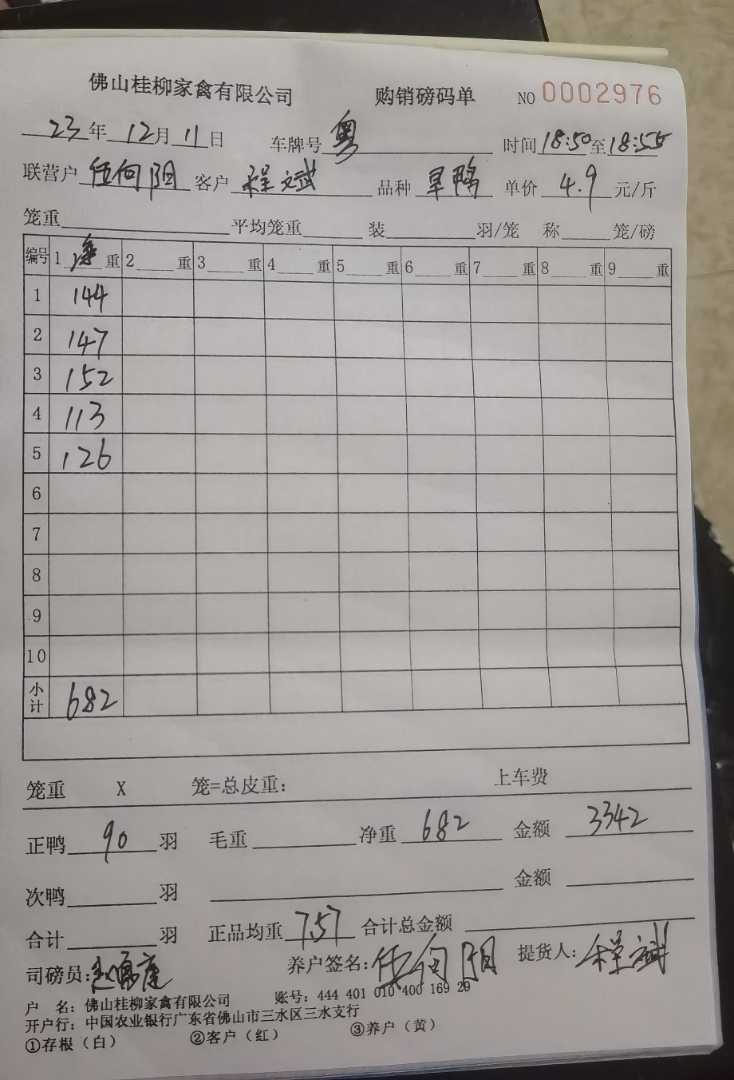 佛山桂柳家禽有限公司 购销磅码单 NO 0002976
23年12月11日 车牌号 粤 时间18:50至18:55
联营户 伍向阳 客户 程斌 品种 旱鸭 单价 4.9 元/斤
笼重 平均笼重 装 羽/笼 称 笼/磅
编号 1 重 2 重 3 重 4 重 5 重 6 重 7 重 8 重 9 重
1 144
2 147
3 152
4 113
5 126
6
7
8
9
10
小计 682
笼重 X 笼=总皮重: 上车费
正鸭 90 羽 毛重 净重 682 金额 3342
次鸭 羽 金额
合计 羽 正品均重 7.57 合计总金额
司磅员: 养户签名: 伍向阳 提货人: 程斌
户 名: 佛山桂柳家禽有限公司 账号: 444 401 010 400 169 29
开户行: 中国农业银行广东省佛山市三水区三水支行
①存根(白) ②客户(红) ③养户(黄)